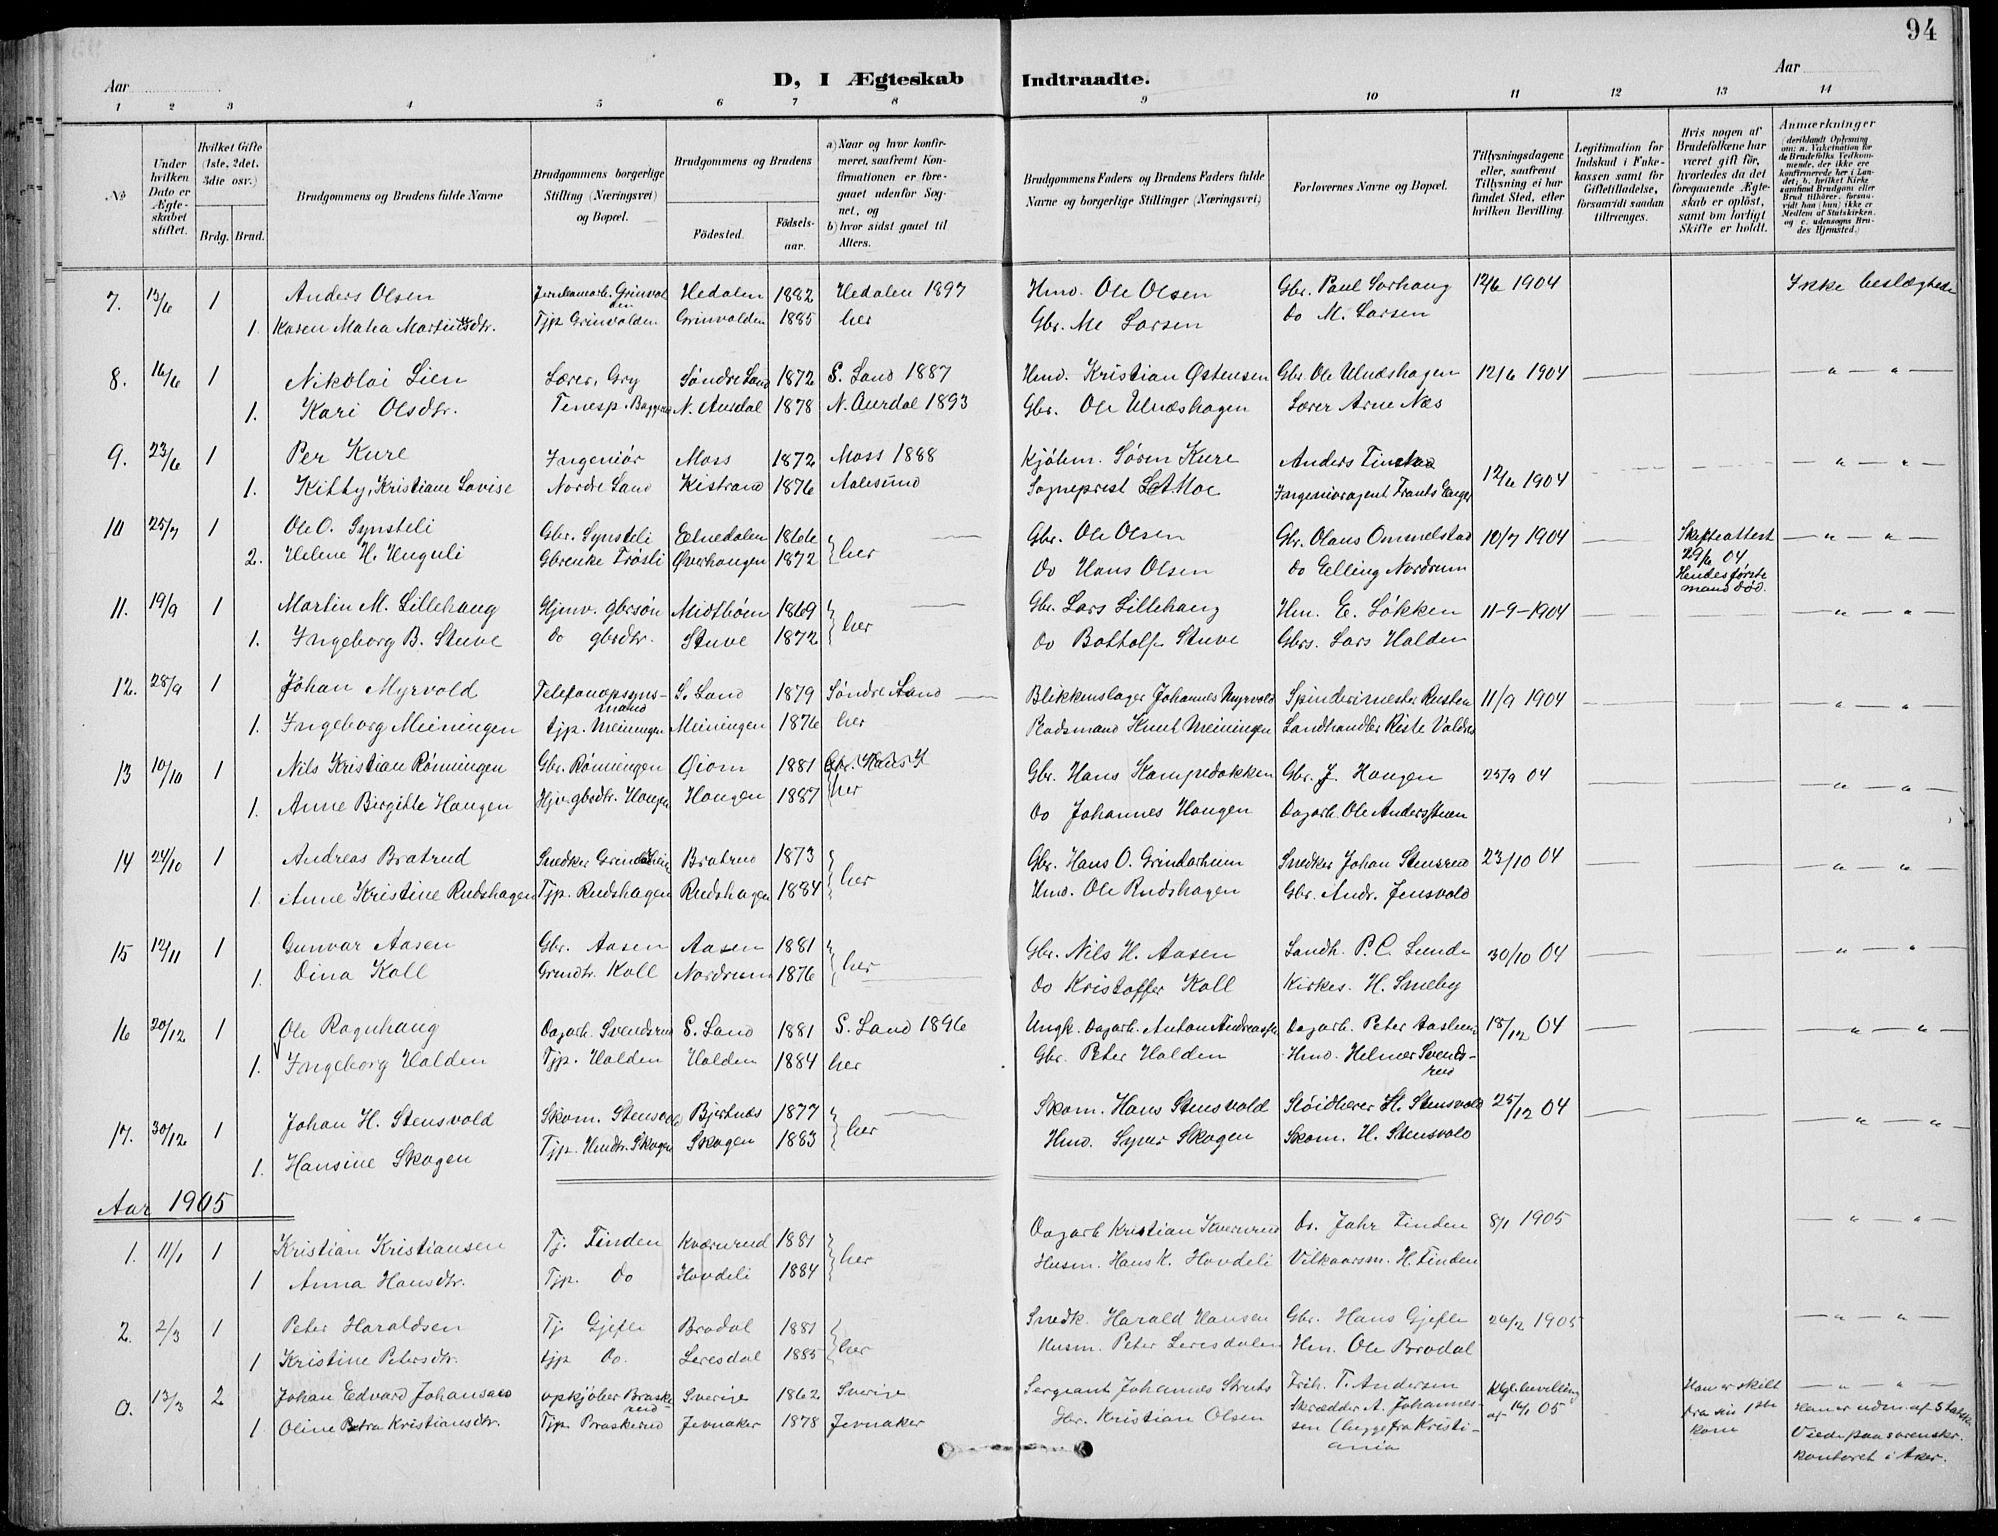 94
D, I Ægteskab Indtraadte.
Aar
Aar
1 2 3 4 5 6 7 8 9 10 11 12 13 14
№
Under hvilken Dato er Ægteskabet stiftet.
Hvilket Gifte (1ste, 2det, 3die osv.)
Brdg. Brud.
Brudgommens og Brudens fulde Navne
Brudgommens borgerlige Stilling (Næringsvei) og Bopæl.
Brudgommens og Brudens
Födested.
Födselsaar.
a) Naar og hvor konfirmeret, saafremt Konfirmationen er foregaaet udenför Sognet, og
b) hvor sidst gaaet til Alters.
Brudgommens Faders og Brudens Faders fulde Navne og borgerlige Stillinger (Næringsvei)
Forlovernes Navne og Bopæl.
Tillysningsdagene eller, saafremt Tillysning ei har fundet Sted, efter hvilken Bevilling.
Legitimation for Indskud i Enkekassen samt for Giftetilladelse, forsaavidt saadan tiltrænges.
Hvis nogen af Brudefolkene har været gift för, hvorledes da det foregaaende Ægteskab er oplöst, samt om lovligt Skifte er holdt.
Anmærkninger
(deriblandt Oplysning om: a. Vakcination for de Brudefolks Vedkommende, der ikke ere konfirmerede her i Landet; b. hvilket Kirkesamfund Brudgom eller Brud tilhörer, forsaavidt han (hun) ikke er Medlem af Statskirken, og c. udensogns Brudes Hjemsted.)
7. 13/6 1 Anders Olsen Hedalen 1882 Hedalen 1897 Hmd. Ole Olsen Gbr. Paul Sørhaug 12/6 1904 Ikke beslægtede
1. Karen Mathea Tjp Grinvolden Grinvolden 1885 her Gbr. M. Larsen Do M. Larsen
8. 16/6 1 Nikolai Lien Lærer, Gry Søndre Land 1872 S. Land 1887 Hmd. Kristian Østensen Gbr. Ole Ulnæshagen 12/6 1904 — " — "
1. Kari Olsdtr. N. Aurdal 1878 N. Aurdal 1893 Gbr. Ole Ulnæshagen Lærer Arne Næs
9. 23/6 1 Per Kure Ingeniør Moss 1872 Moss 1888 Kjøbm. Søren Kure Anders 12/6 1904 — " — "
1. Kitty, Kristiane Lovise Nordre Land Kistrand 1876 Aalesund Sogneprest Moe Ingeniøragent Frants
10 25/7 1 Ole O. Synsteli Gbr. Synsteli Etnedalen 1866 her Gbr. Ole Olsen Gbr. Olaus Ommelstad 10/7 1904 Skifteattest 29/6 04 — " — "
2. Helene H. Huguli Gbrenke Frøsli Øverhaugen 1872 Do Hans Olsen Do Elling Nordrum Hendes første mand død.
11. 19/9 1 Martin M. Lillehaug Hjmv. gbrsøn Midtbøen 1869 her Gbr. Lars Lillehaug Hm. E. Løkken 11-9-1904 — " — "
1. Ingeborg B. Stuve Do gbrdtr. Stuve 1872 Do Botholf Stuve Gbrs. Lars Halden
12. 28/9 1 Johan Myrvold Telefonopsynsmand S. Land 1879 Søndre Land Blikkenslager Johannes Myrvold Spinderimester 11/9 1904 — " — "
1. Ingeborg Meiningen tjp. Meiningen Meiningen 1876 her Radsmand Knut Meiningen Landhandler Riste Valdres
13 10/10 1 Nils Kristian Rønningen Gbr. Rønningen Øiom 1881 her Gbr. Hans Kampedokken Gbr. J. Haugen 25/9 04 — " — "
1. Anne Birgitte Haugen Hjv. gbrdtr. Haugen Haugen 1887 Do Johannes Haugen Dagarb. Ole
14 24/10 1 Andreas Bratrud Snedker Bratrud 1873 her Gbr. Hans O. Grindarheim Snedker Johan Stensrud 23/10 04 — " — "
1. Anne Kristine Rudshagen Tjp. Rudshagen Rudshagen 1884 Hmd. Ole Rudshagen Gbr. Andr. Jensvold
15 12/11 1 Gunvar Aasen Gbr. Aasen Aasen 1881 her Gbr. Nils H. Aasen Landh. P. C. Lunde 30/10 04 — " — "
1. Dina Koll Grundtr. Koll Nordrum 1876 Do Kristoffer Koll Kirkes. H. Smeby
16 20/12 1 Ole Rognhaug Dagarb. Svendsrud S. Land 1881 S. Land 1896 Ungk. Dagarb. Anton Dagarb. Peter 18/12 04 — " — "
1. Ingeborg Halden Tjp. Halden Halden 1884 her Gbr. Peter Halden Hmd. Helmer Svendsrud
17. 30/12 1 Johan H. Stensvold Skom. Stensvold Bjertnæs 1877 her Skom. Hans Stensvold Sløidlærer H. Stensvold 25/12 04 — " — "
1. Hansine Skogen Tjp. Hmdtr. Skogen Skogen 1883 Hmd. Syver Skogen Skom. H. Stensvold
Aar 1905
1. 11/1 1 Kristian Kristiansen Tj. Finden Kværnrud 1881 her Dagarb Kristian Kværnrud Do. Jahr Finden 8/1 1905 — " — " —
1 Anna Hansdtr. Tjp. Do Hovdeli 1884 Husm. Hans K. Hovdeli Vilkaarsm. H. Finden
2. 2/3 1 Peter Haraldsen Tj. Gjefle Brodal 1881 her Snedk. Harald Hansen Gbr. Hans Gjefle 26/2 1905 — " — " —
1 Kristine Petersdtr. tjp Do. Leresdal 1885 Husm. Peter Leresdalen Hm. Ole Brodal
0. 13/3 2 Johan Edvard Johansson opkjøber Braskerud Sverige 1862 Sverige Sergeant Johannes Frih. T. Andersen Kgl. bevilling af 16/1 05 Han er skilt fra sin 1ste kone — " — " —
1 Oline Petra Kristiansdtr. Tjp. Braskerud Jevnaker 1878 Jevnaker Gbr. Kristian Olsen Skrædder A. Johannessen (begge fra Kristiania Han er udm. af Statsk. Viede paa sorenskr. kontoret i Aker.